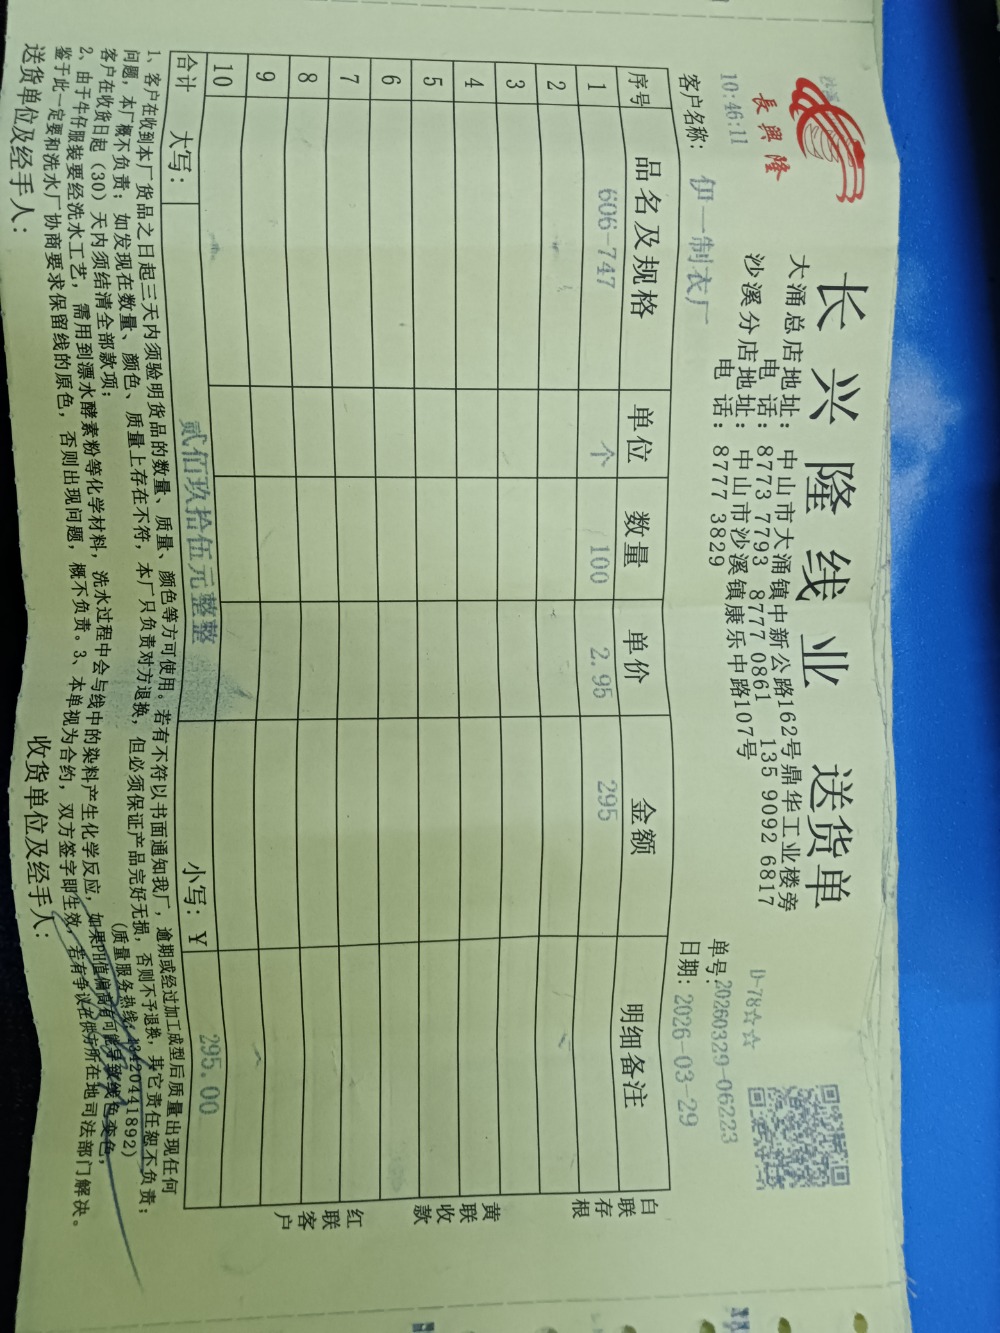 沙溪
長興隆
10:46:11
长兴隆线业 送货单
大涌总店地址：中山市大涌镇中新公路162号鼎华工业楼旁
电话：8773 7793 8777 0861 135 9092 6817
沙溪分店地址：中山市沙溪镇康乐中路107号
电话：8777 3829
D-78☆☆
单号:20260329-06223
客户名称： 伊一制衣厂
日期：2026-03-29
序号 品名及规格 单位 数量 单价 金额 明细备注
1 606-747 个 100 2.95 295
2
3
4
5
6
7
8
9
10
合计 大写： 贰佰玖拾伍元整整 小写：￥ 295.00
白联存根
黄联收款
红联客户
1、客户在收到本厂货品之日起三天内须验明货品的数量、质量、颜色等方可使用。若有不符以书面通知我厂，逾期或经过加工成型后质量出现任何
问题，本厂概不负责；如发现在数量、颜色、质量上存在不符，本厂只负责对方退换，但必须保证产品完好无损，否则不予退换，其它责任恕不负责；
客户在收货日起（30）天内须结清全部款项；
(质量服务热线:13420441892)
2、由于牛仔服装要经洗水工艺，需用到漂水酵素粉等化学材料，洗水过程中会与线中的染料产生化学反应，如果PH值偏高有可能导致线色变色，
鉴于此一定要和洗水厂协商要求保留线的原色，否则出现问题，概不负责。3、本单视为合约，双方签字即生效，若有争议在供方所在地司法部门解决。
送货单位及经手人：
收货单位及经手人：